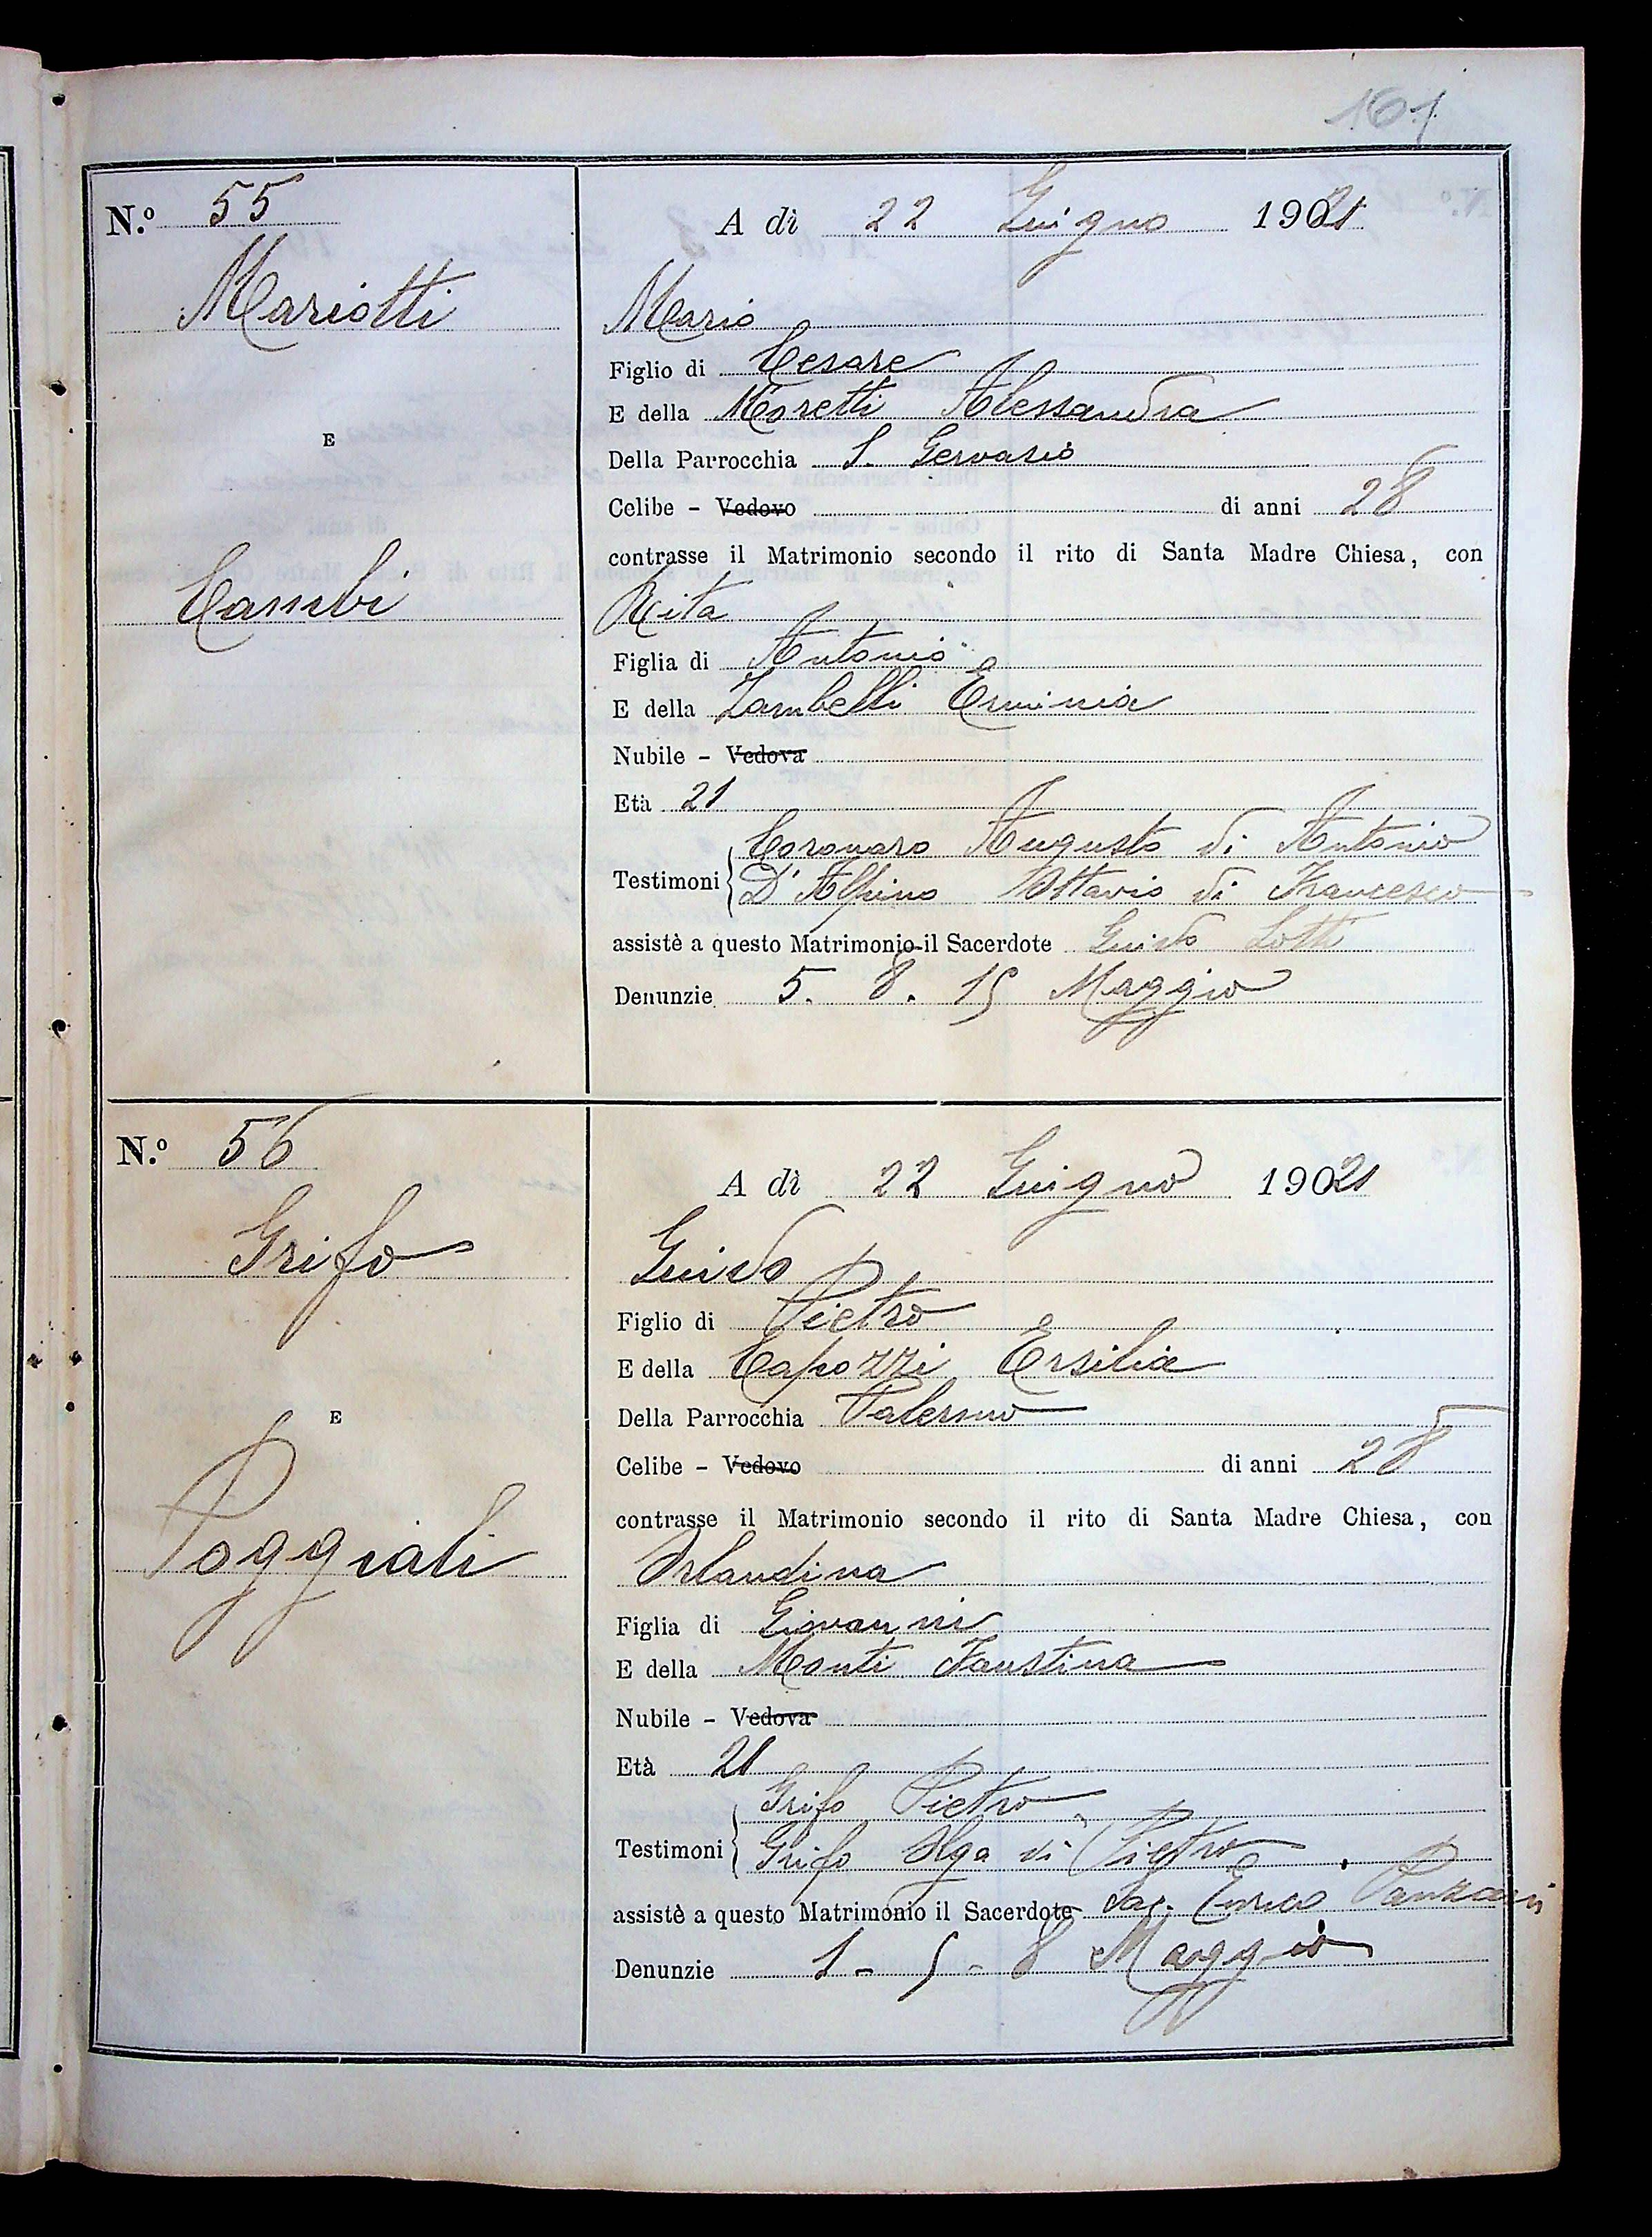 161
N.º 55
A dì 22 Giugno 1921
Mariotti
Mario
Figlio di Cesare
E della Moretti Alessandra
E
Della Parrocchia S. Gervasio
Celibe - Vedovo di anni 28
contrasse il Matrimonio secondo il rito di Santa Madre Chiesa, con
Cambi
Rita
Figlia di Antonio
E della Zambelli Erminia
Nubile - Vedova
Età 21
Testimoni { Coronaro Augusto di Antonio
D'Alpino Ottavio di Francesco
assistè a questo Matrimonio il Sacerdote Guido Lotti
Denunzie 5. 8. 15 Maggio
N.º 56
A dì 22 Giugno 1921
Grifo
Guido
Figlio di Pietro
E della Capozzi Ersilia
E
Della Parrocchia Palermo
Celibe - Vedovo di anni 28
contrasse il Matrimonio secondo il rito di Santa Madre Chiesa, con
Poggiali
Orlandina
Figlia di Giovanni
E della Monti Faustina
Nubile - Vedova
Età 21
Testimoni { Grifo Pietro
Grifo Olga di Pietro
assistè a questo Matrimonio il Sacerdote Sac. Enrico Panzani
Denunzie 1 - 5 - 8 Maggio